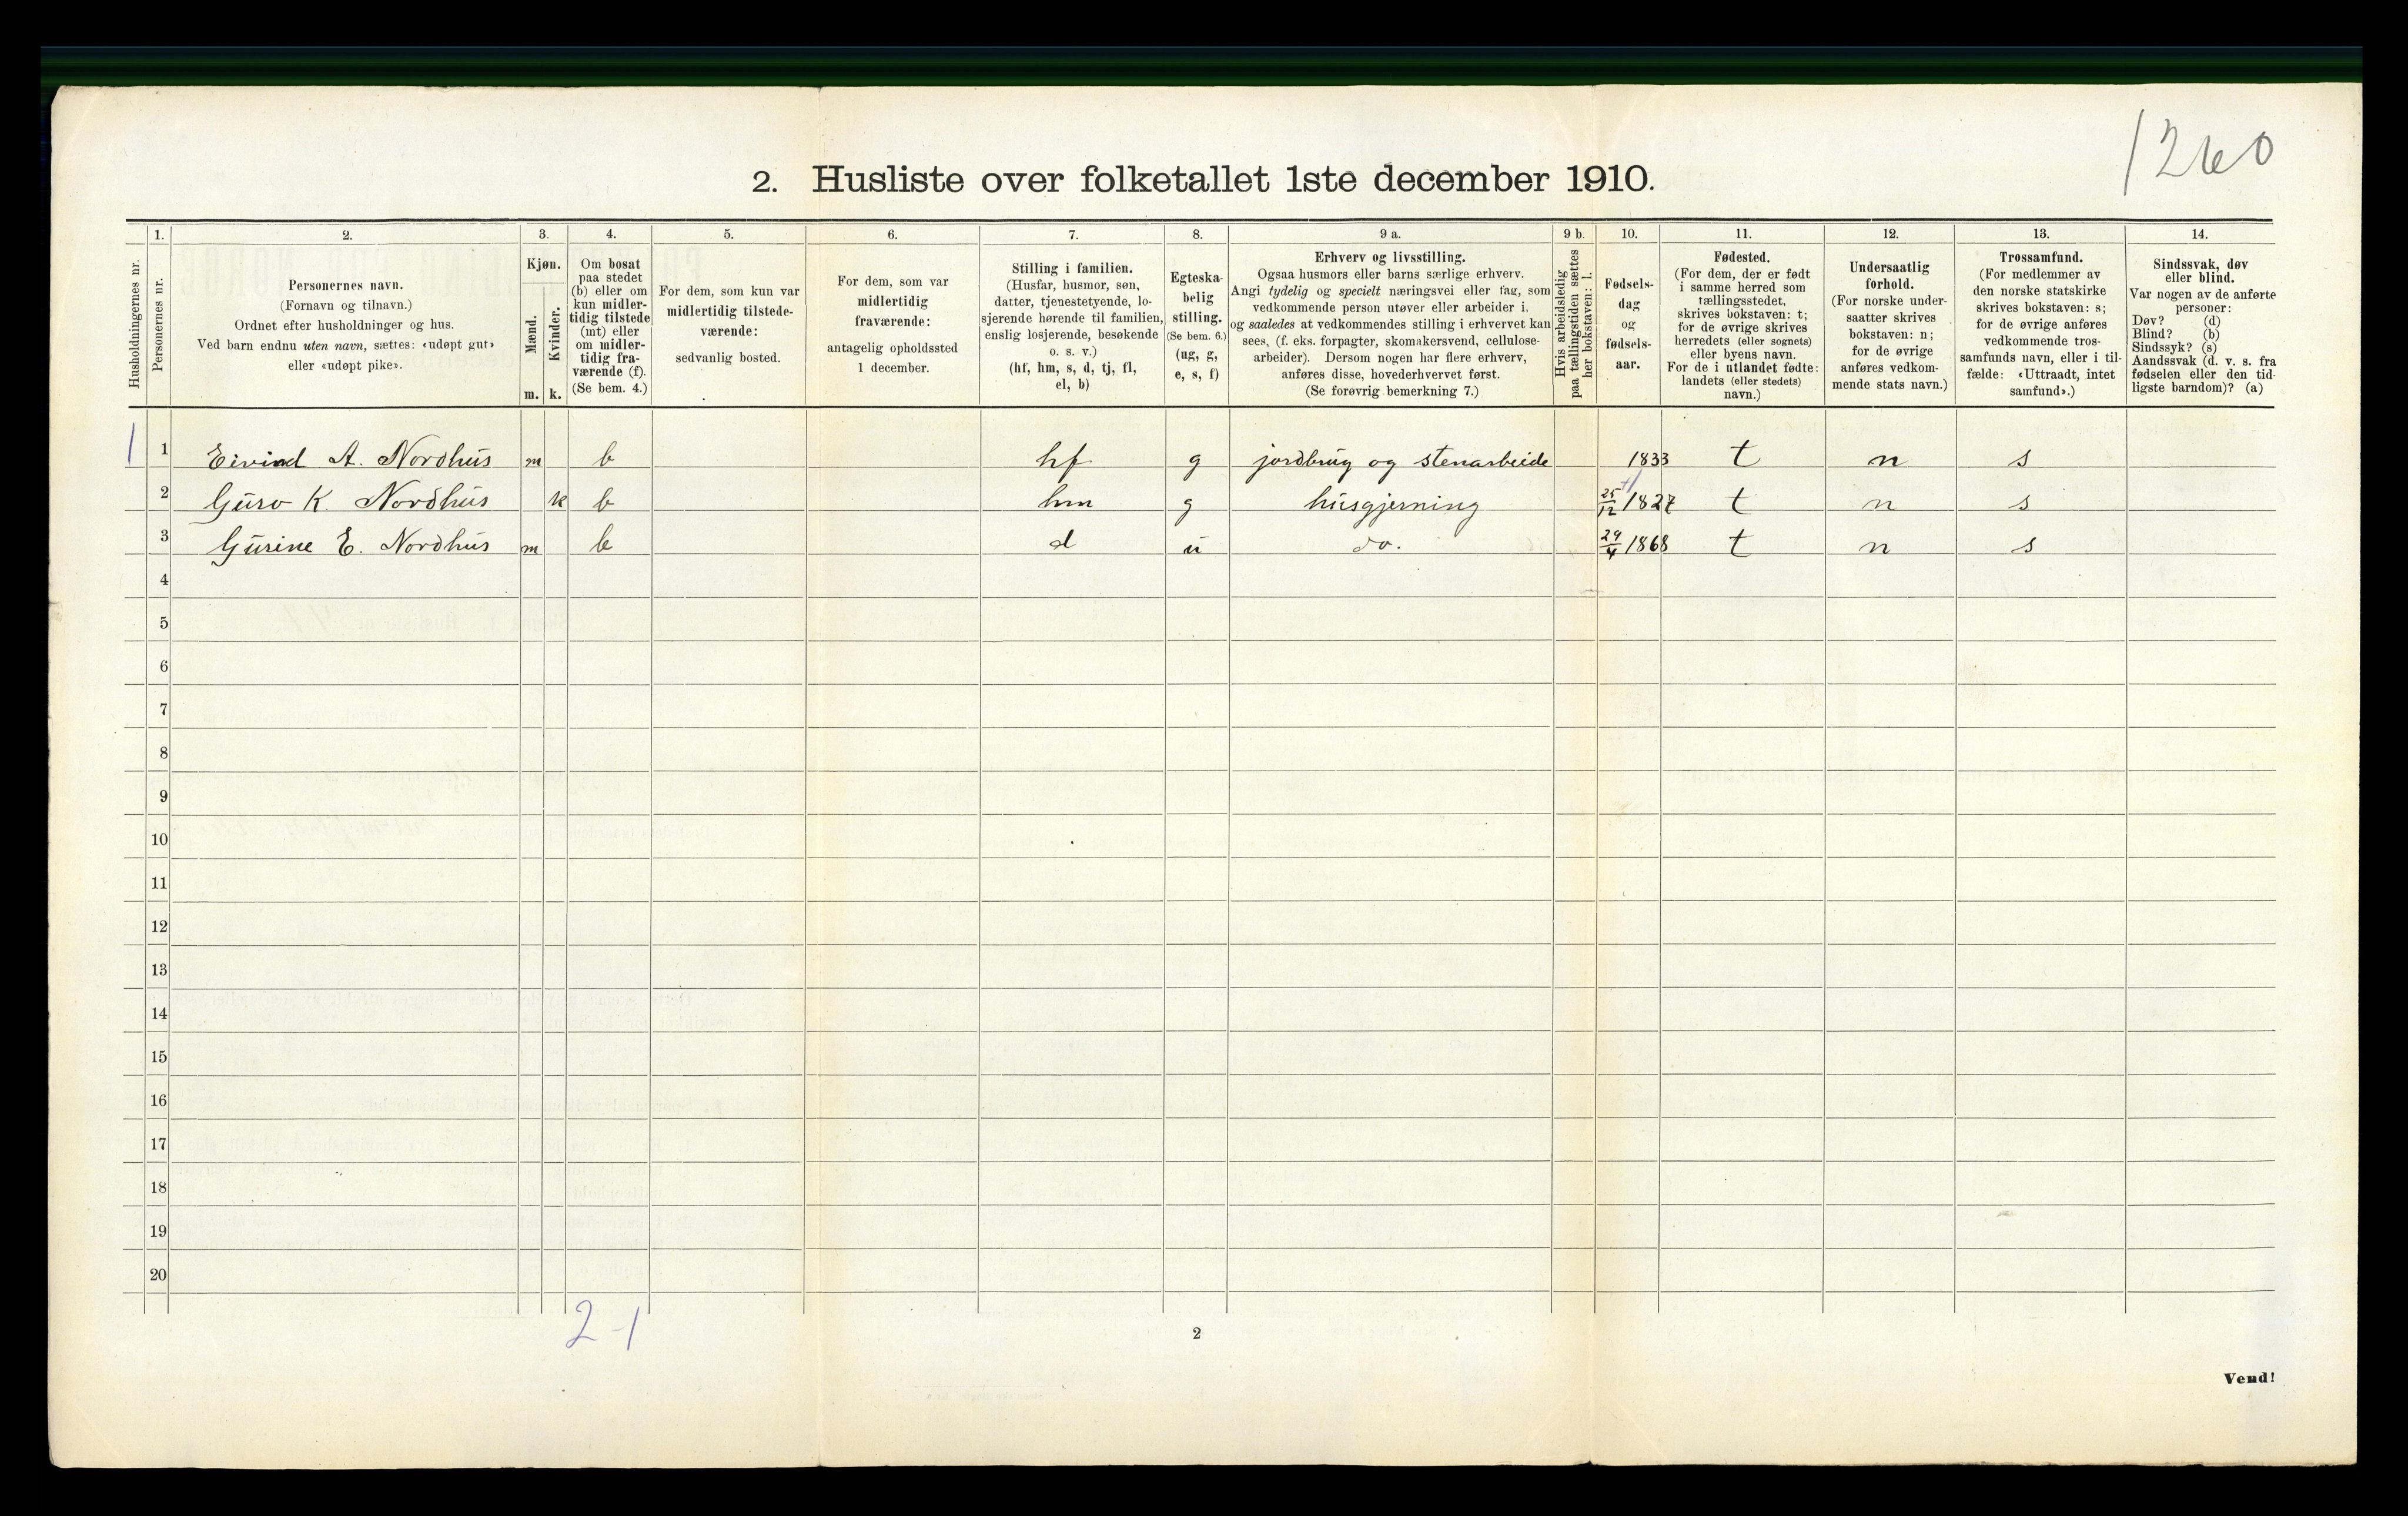 1260
2. Husliste over folketallet 1ste december 1910.
Husholdningernes nr.
1.
Personernes nr.
2.
Personernes navn.
(Fornavn og tilnavn.)
Ordnet efter husholdninger og hus.
Ved barn endnu uten navn, sættes: «udøpt gut»
eller «udøpt pike».
3.
Kjøn.
Mænd.
Kvinder.
m. k.
4.
Om bosat
paa stedet
(b) eller om
kun midler-
tidig tilstede
(mt) eller
om midler-
tidig fra-
værende (f).
(Se bem. 4.)
5.
For dem, som kun var
midlertidig tilstede-
værende:
sedvanlig bosted.
6.
For dem, som var
midlertidig
fraværende:
antagelig opholdssted
1 december.
7.
Stilling i familien.
(Husfar, husmor, søn,
datter, tjenestetyende, lo-
sjerende hørende til familien,
enslig losjerende, besøkende
o. s. v.)
(hf, hm, s, d, tj, fl,
el, b)
8.
Egteska-
belig
stilling.
(Se bem. 6.)
(ug, g,
e, s, f)
9 a.
Erhverv og livsstilling.
Ogsaa husmors eller barns særlige erhverv.
Angi tydelig og specielt næringsvei eller fag, som
vedkommende person utøver eller arbeider i,
og saaledes at vedkommendes stilling i erhvervet kan
sees, (f. eks. forpagter, skomakersvend, cellulose-
arbeider). Dersom nogen har flere erhverv,
anføres disse, hovederhvervet først.
(Se forøvrig bemerkning 7.)
9 b.
Hvis arbeidsledig
paa tællingstiden sættes
her bokstaven: l.
10.
Fødsels-
dag
og
fødsels-
aar.
11.
Fødested.
(For dem, der er født
i samme herred som
tællingsstedet,
skrives bokstaven: t;
for de øvrige skrives
herredets (eller sognets)
eller byens navn.
For de i utlandet fødte:
landets (eller stedets)
navn.)
12.
Undersaatlig
forhold.
(For norske under-
saatter skrives
bokstaven: n;
for de øvrige
anføres vedkom-
mende stats navn.)
13.
Trossamfund.
(For medlemmer av
den norske statskirke
skrives bokstaven: s;
for de øvrige anføres
vedkommende tros-
samfunds navn, eller i til-
fælde: «Uttraadt, intet
samfund».)
14.
Sindssvak, døv
eller blind.
Var nogen av de anførte
personer:
Døv? (d)
Blind? (b)
Sindssyk? (s)
Aandssvak (d. v. s. fra
fødselen eller den tid-
ligste barndom)? (a)
1 1 Eivind A. Nordhus m b hf g jordbrug og stenarbeide 1833 t n s
2 Guro K. Nordhus k b hm g husgjerning 25/12 1827 t n s
3 Gurine E. Nordhus m b d u do. 29/4 1868 t n s
4
5
6
7
8
9
10
11
12
13
14
15
16
17
18
19
20
2-1
2
Vend!